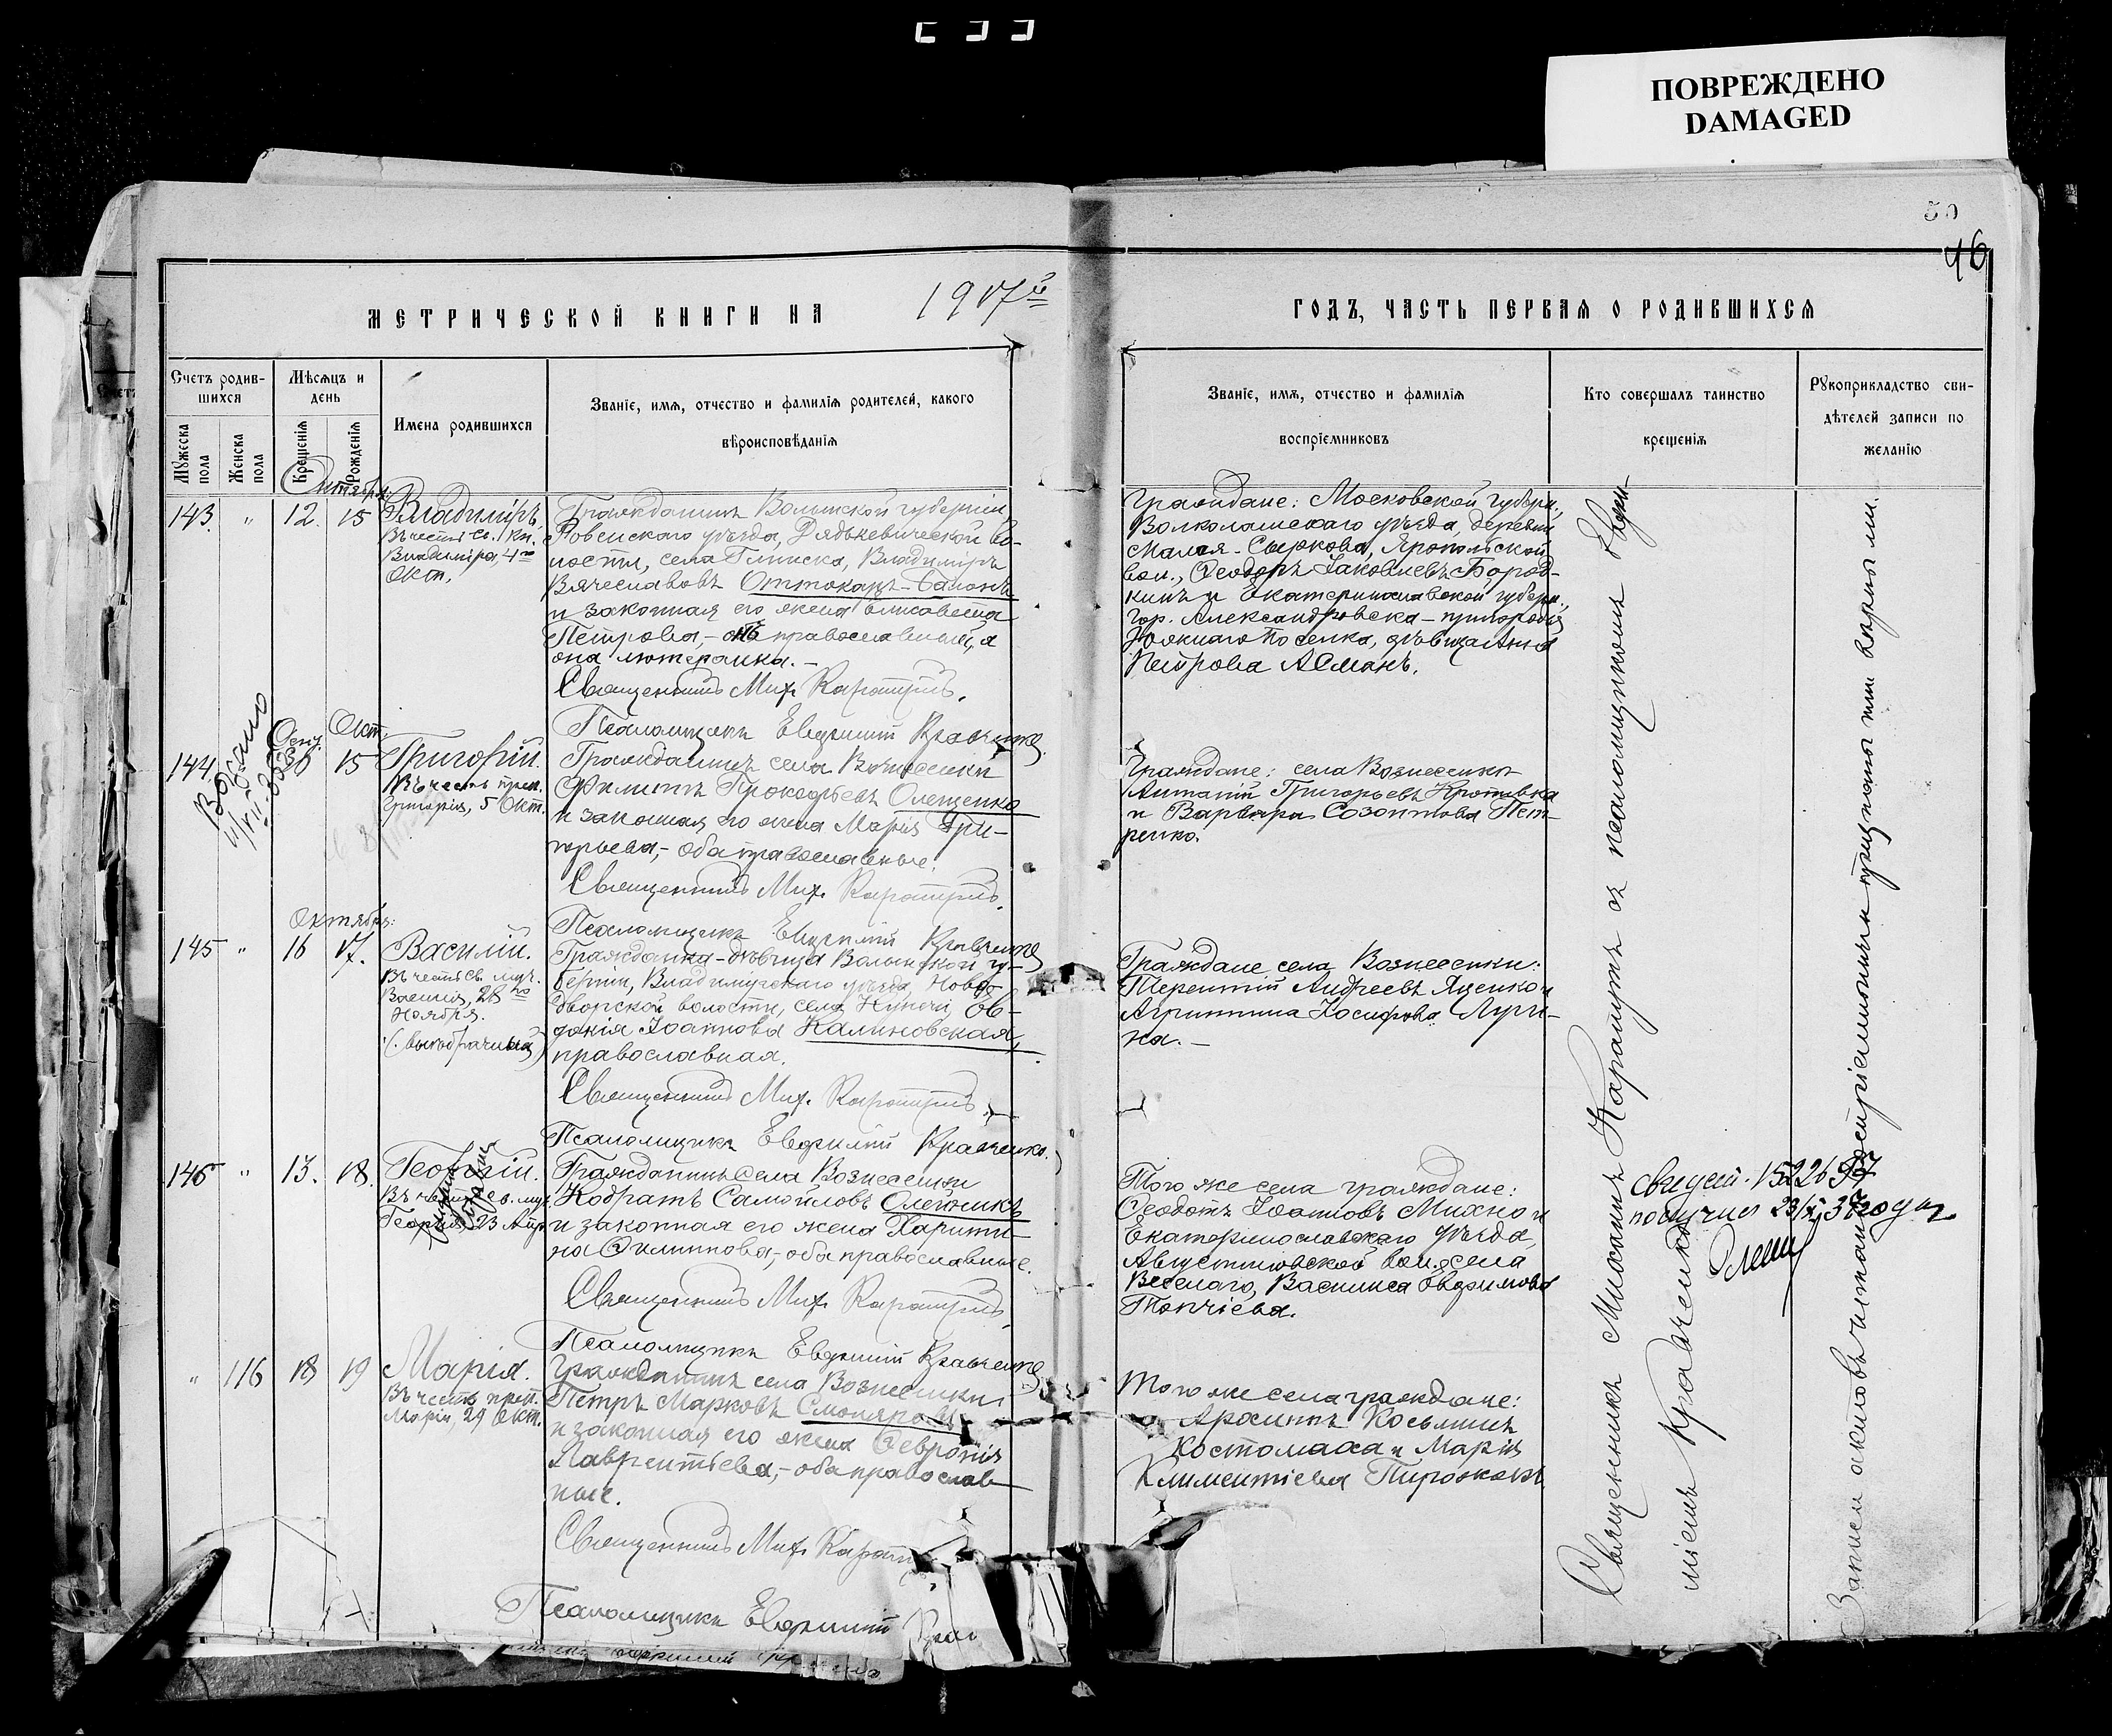 ПОВРЕЖДЕНО
DAMAGED
50
46
МЕТРИЧЕСКОЙ КНИГИ НА 1917й
ГОДЪ, ЧАСТЬ ПЕРВАЯ О РОДИВШИХСЯ
Счетъ родив-
шихся
Мужеска пола
Женска пола
Мѣсяцъ и
день
Крещенія
Рожденія
Имена родившихся
Званіе, имя, отчество и фамилія родителей, какого
вѣроисповѣданія
Званіе, имя, отчество и фамилія
воспріемниковъ
Кто совершалъ таинство
крещенія
Рукоприкладство сви-
дѣтелей записи по
желанію
Октября:
143 " 12. 15
Владиміръ.
Въ честь Св. кн.
Владиміра, 4го
Окт.
Гражданинъ Волынской губерніи,
Ровенскаго уѣзда, Дядьковической во-
лости, села Глинска, Владиміръ
Вячеславовъ Оттокаръ-
и законная его жена Елисавета
Петрова,- онъ православный, а
она лютеранка.-
Священникъ Мих. Карапутъ.
Псаломщикъ Евфимій Кравченко.
Граждане: Московской губерн.,
Волколамскаго уѣзда, деревни
Малая-Сыркова, Яропольской
вол., Ѳеодоръ Іаковлевъ Бород-
кинъ и Екатеринославской губерн.,
гор. Александровска - пригородн.
Южнаго Поселка, дѣвица Анна
Петрова Асманъ.
Окт.
144 30 15
Григорій.
Въ честь преп.
Григорія, 5 Окт.
Гражданинъ села Вознесенки
Филиппъ Прокофьевъ Олещенко
и законная его жена Марія Гри-
горьева,- оба православные.
Священникъ Мих. Карапутъ.
Псаломщикъ Евфимій Кравченко
Граждане: села Вознесенки
Антоній Григорьевъ Кротивка
и Варвара Созонтова Пет-
ренко.
Октября:
145 " 16 17.
Василій.
Въ честь Св. муч.
Василія, 28го
Ноября.
(внѣбрачный)
Гражданка-дѣвица Волынской гу-
берніи, Владимірскаго уѣзда, Ново-
дворской волости, села Ев-
докія Іоаннова Калиновская,
православная.
Священникъ Мих. Карапутъ.
Псаломщикъ Евфимій Кравченко.
Граждане села Вознесенки:
Терентій Андреевъ Яценко и
Агриппина Іосифова
на.-
146 " 13. 18.
Георгій.
Въ честь Св. муч.
Георгія, 23 Апр.
Гражданинъ села Вознесенки
Кодратъ Самойловъ Олейникъ
и законная его жена Харити-
на Филиппова,- оба православные.
Священникъ Мих. Карапутъ.
Псаломщикъ Евфимій Кравченко
Того же села граждане:
Ѳеодотъ Іоанновъ Михно и
Екатеринославскаго уѣзда,
Августиновской вол. села
Веселаго, Василиса Евфимова
Топчіева.
свидет. 15226
получил 23/ 37 году
" 116 18 19
Марія.
Въ честь преп.
Маріи, 29 Окт.
Гражданинъ села Вознесенки
Петръ Марковъ
и законная его жена Февронія
Лаврентіева,- оба православ-
ные.
Священникъ Мих.
Псаломщикъ Евфимій
Того же села граждане:
Косьминъ
Костомаха и Марія
Климентіева
Священникъ Михаилъ Карапутъ съ псаломщикомъ Евфи-
міемъ Кравченко
Записи актовъ читали воспріемникамъ